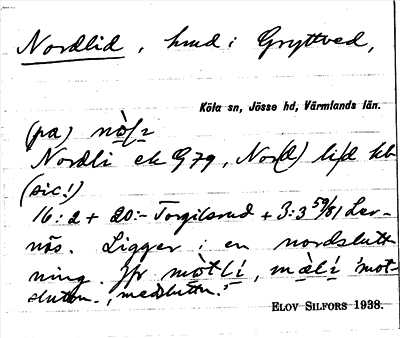 Nordlid, hmd i Gryttved,
Köla sn, Jösse hd, Värmlands län.
(pa) nòłi
Nordli ek G79, Nor(d)li/d kb
(sic!)
16:2 + 20:- Torgilsrud + 3:3 59/81 Ler-
nös. Ligger i en nordslutt-
ning. Jfr mòtłi, mæ̀łi 'mot-
slutten', 'medsluttn.'
ELOV SILFORS 1938.